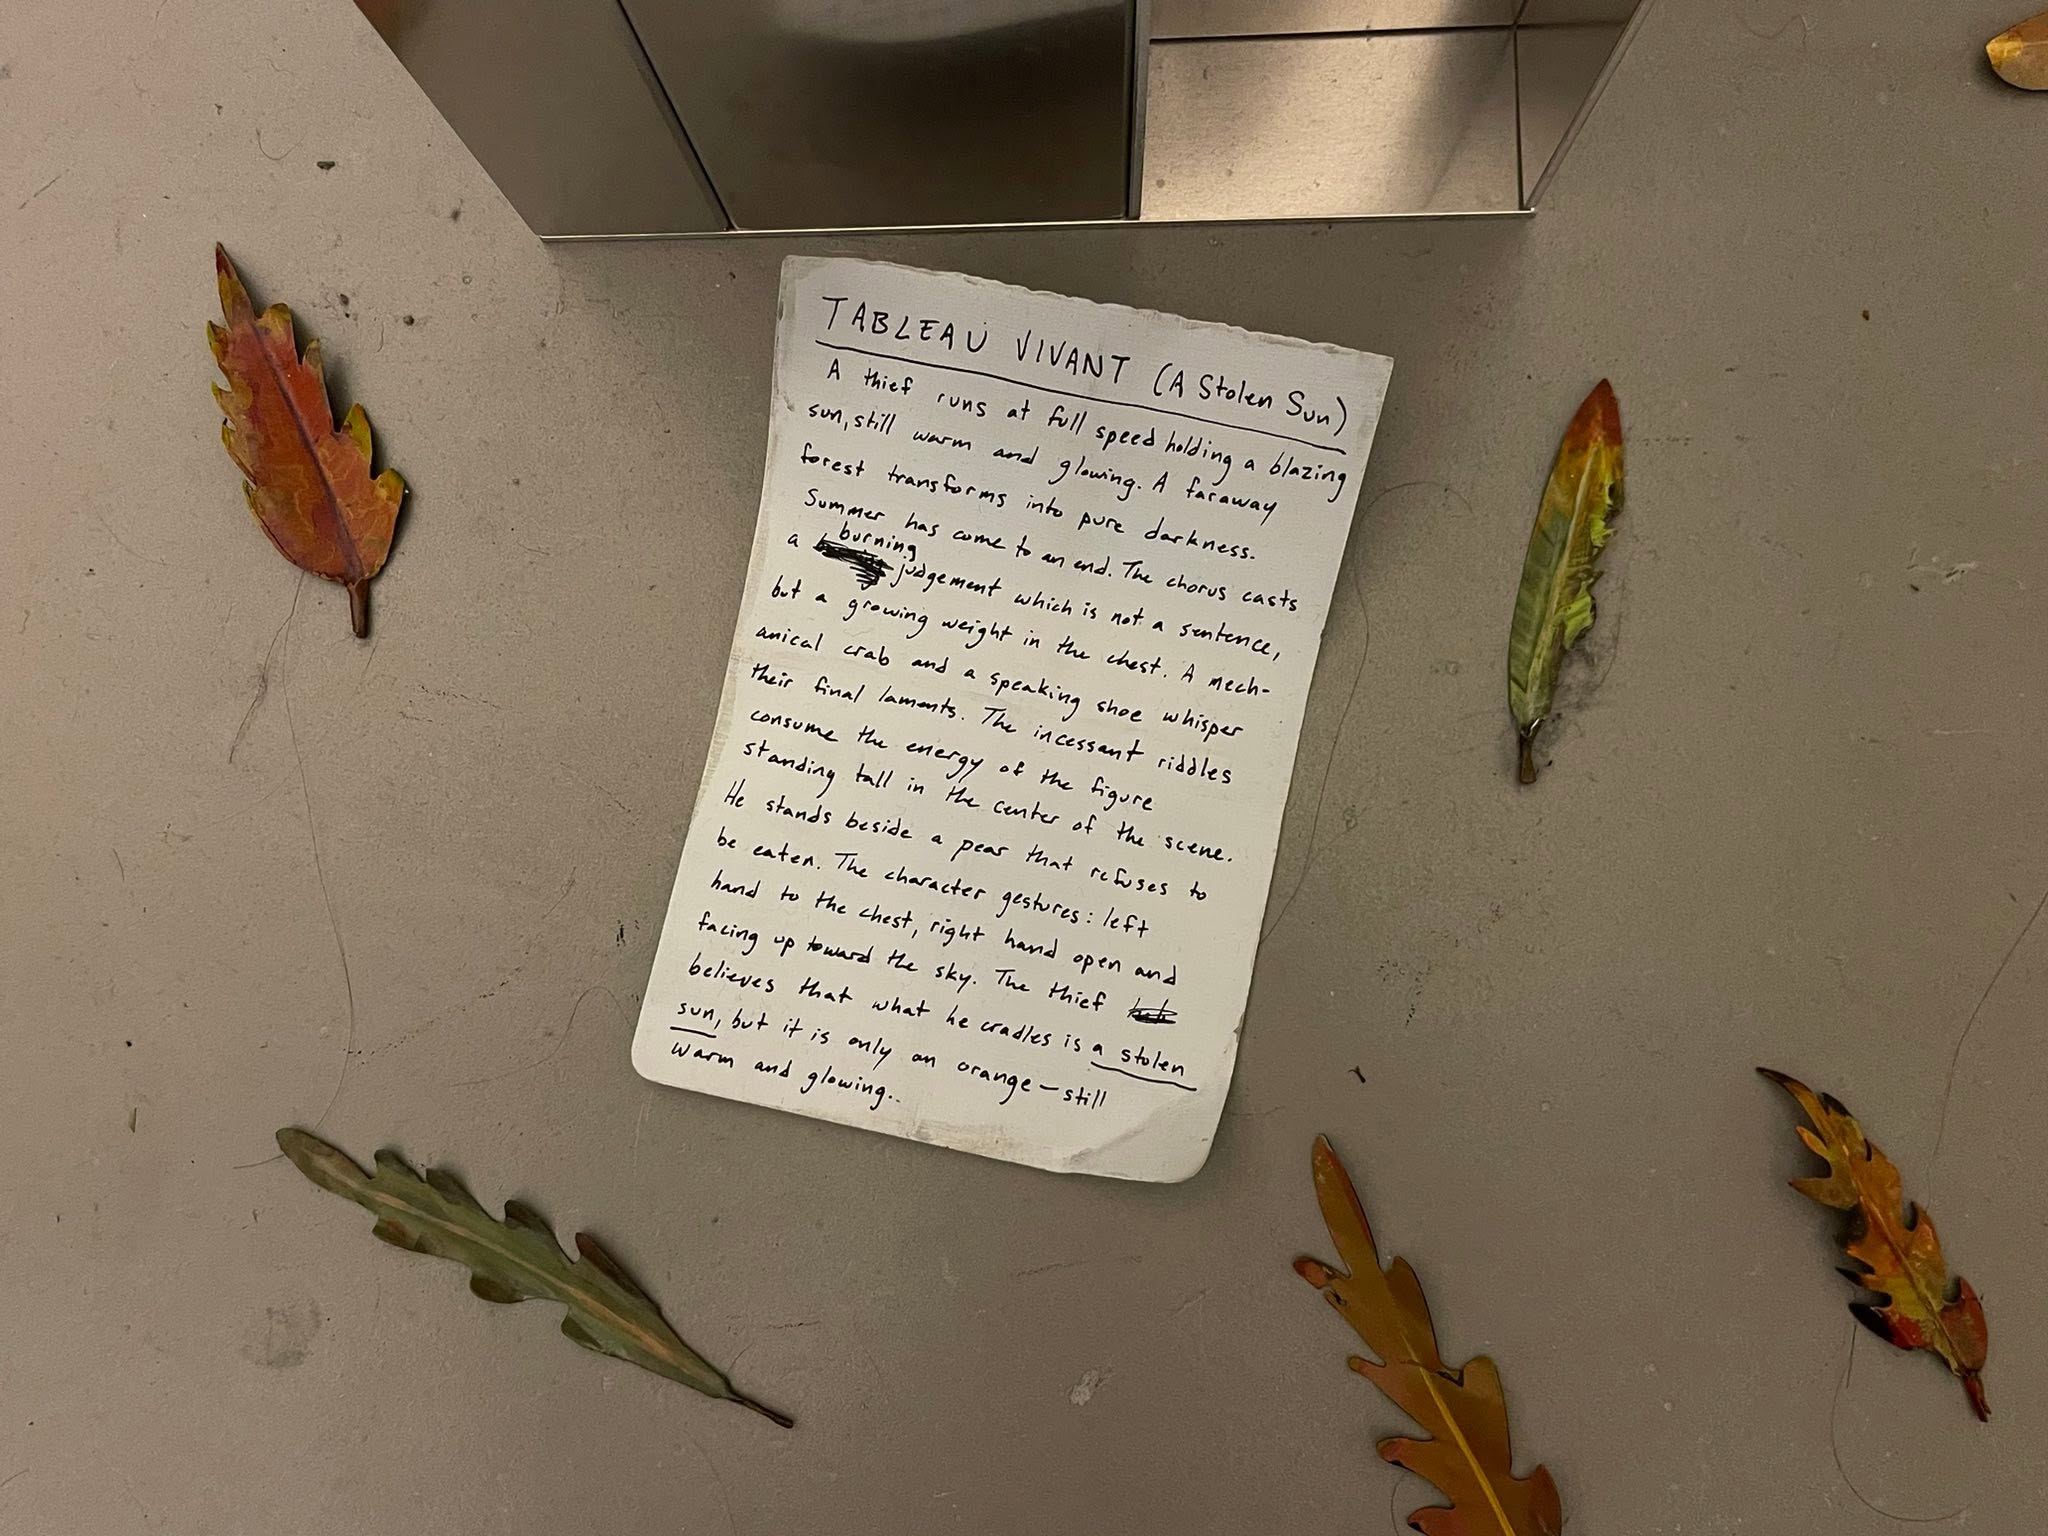 TABLEAU VIVANT (A Stolen Sun)
A thief runs at full speed holding a blazing
sun, still warm and glowing. A faraway
forest transforms into pure darkness.
Summer has come to an end. The chorus casts
a burning judgement which is not a sentence,
but a growing weight in the chest. A mech-
anical crab and a speaking shoe whisper
their final laments. The incessant riddles
consume the energy of the figure
standing tall in the center of the scene.
He stands beside a pear that refuses to
be eaten. The character gestures: left
hand to the chest, right hand open and
facing up toward the sky. The thief
believes that what he cradles is a stolen
sun, but it is only an orange — still
warm and glowing..